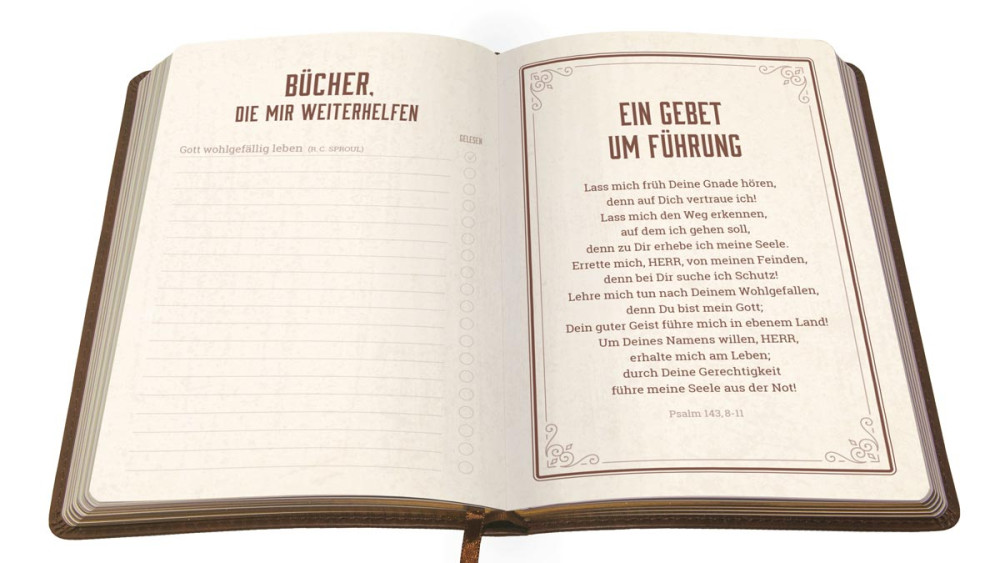 BÜCHER,
DIE MIR WEITERHELFEN
GELESEN
Gott wohlgefällig leben (R. C. SPROUL)
EIN GEBET
UM FÜHRUNG
Lass mich früh Deine Gnade hören,
denn auf Dich vertraue ich!
Lass mich den Weg erkennen,
auf dem ich gehen soll,
denn zu Dir erhebe ich meine Seele.
Errette mich, HERR, von meinen Feinden,
denn bei Dir suche ich Schutz!
Lehre mich tun nach Deinem Wohlgefallen,
denn Du bist mein Gott;
Dein guter Geist führe mich in ebenem Land!
Um Deines Namens willen, HERR,
erhalte mich am Leben;
durch Deine Gerechtigkeit
führe meine Seele aus der Not!
Psalm 143,8-11